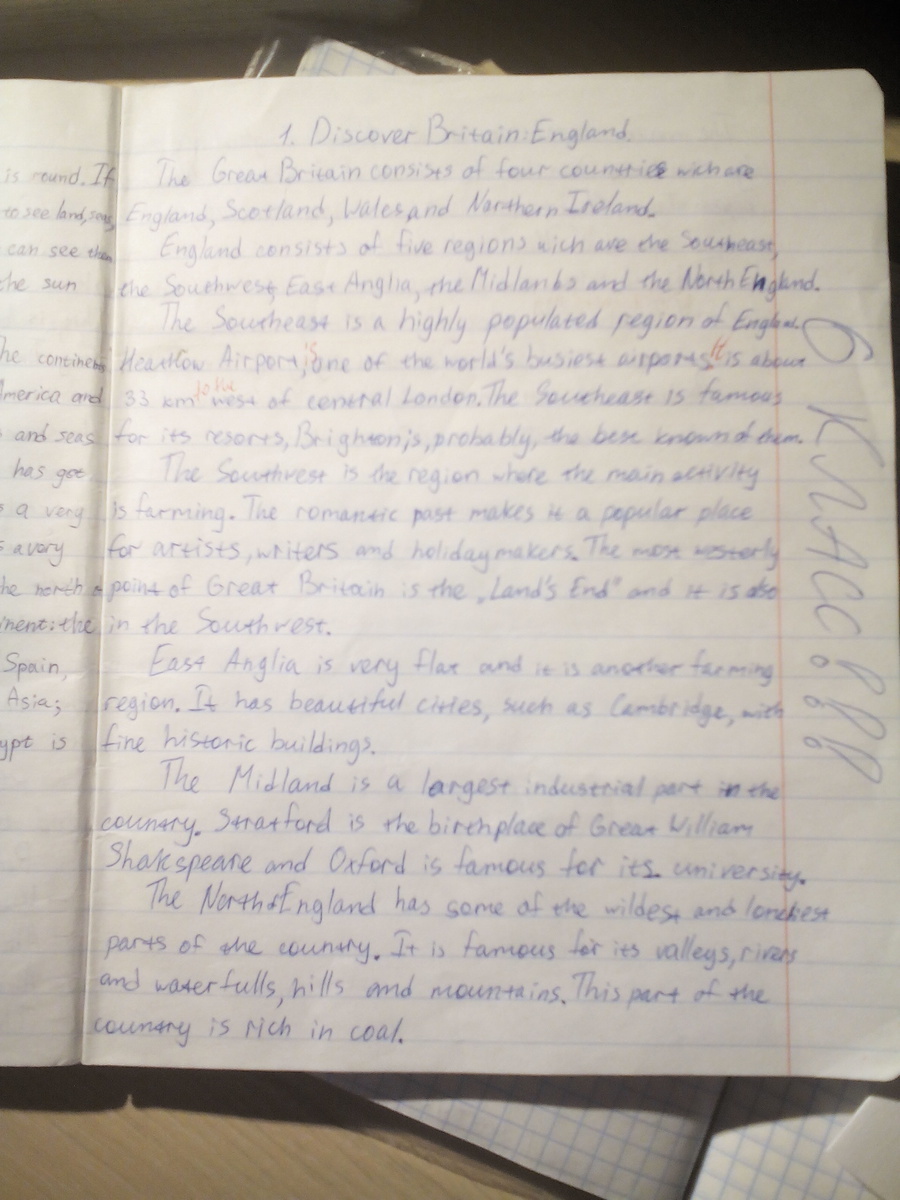 is round. If
to see land, seas,
can see them
the sun
he continents
America and
and seas
has got
s a very
s a very
he north
inent: the
Spain,
Asia;
ypt is
1. Discover Britain: England.
The Great Britain consists of four countries wich are
England, Scotland, Wales, and Northern Ireland.
England consists of five regions wich are the Southeast,
the Southwest, East Anglia, the Midlands and the North England.
The Southeast is a highly populated region of England.
Heathow Airport, is one of the world's busiest airports, it is about
33 km to the west of central London. The Southeast is famous
for its resorts, Brighton, is, probably, the best known of them.
The Southwest is the region where the main activity
is farming. The romantic past makes it a popular place
for artists, writers and holidaymakers. The most westerly
point of Great Britain is the „Land's End" and it is also
in the Southwest.
East Anglia is very flat and it is another farming
region. It has beautiful cities, such as Cambridge, with
fine historic buildings.
The Midland is a largest industrial part in the
country. Stratford is the birthplace of Great William
Shakspeare and Oxford is famous for its university.
The North of England has some of the wildest and loneliest
parts of the country. It is famous for its valleys, rivers
and waterfulls, hills and mountains. This part of the
country is rich in coal.
6 КЛАСС!!!